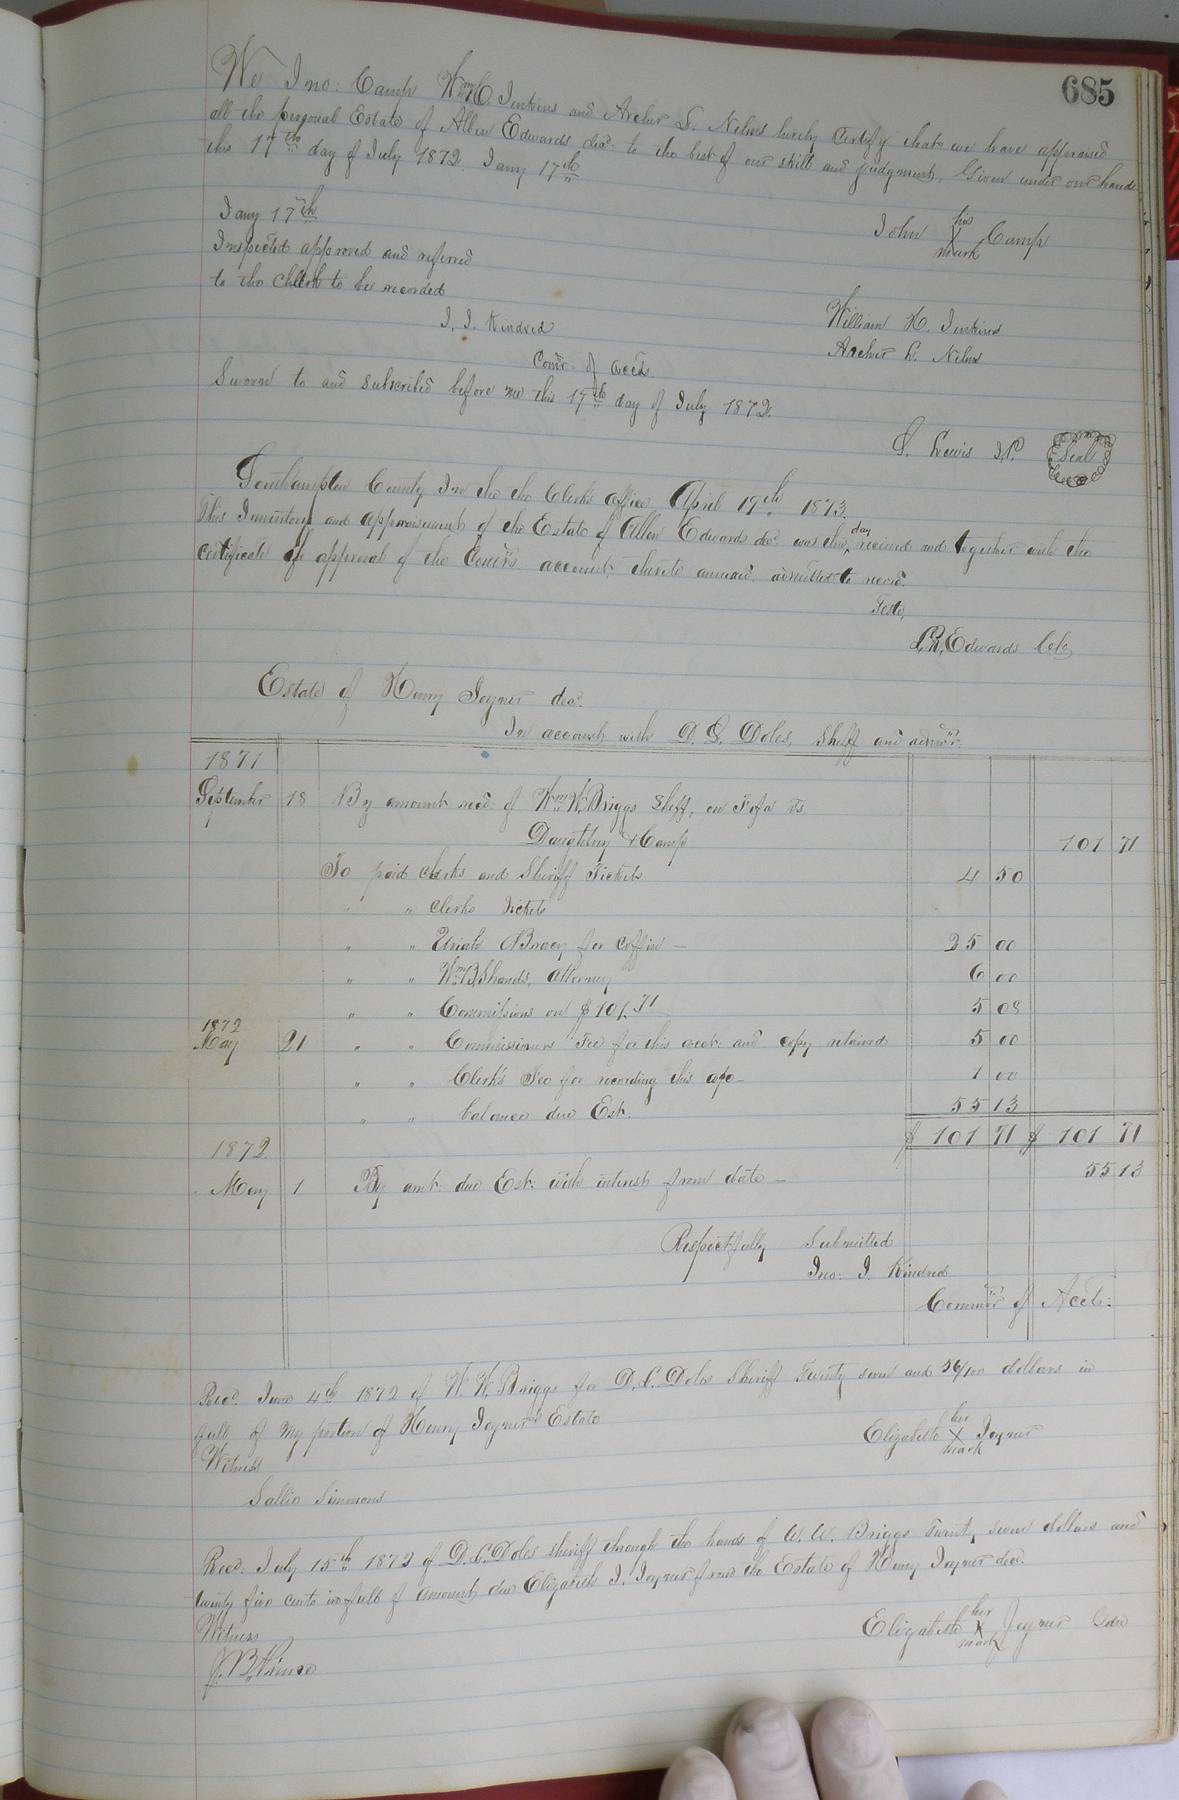 685
We Jno: Camp Wm H. Jenkins and Archer L. Nelms hereby Certify that we have appraised
all the personal Estate of Allen Edwards decd. to the best of our skill and judgment. Given under our hands
this 17th day of July 1872. Jany 17th
Jany 17th
John his X mark Camp
Inspected approved and referred
to the Clerk to be recorded
J. J. Kindred
Comr. of accts.
William H. Jenkins
Archer L. Nelms
Sworn to and subscribed before me this 17th day of July 1872.
S. Lewis J.P. Seal
Southampton County In the the Clerk's office April 17th 1873.
This Inventory and appraisement of the Estate of Allen Edwards decd. was this day received and together with the
certificate of approval of the Comr's account, thereto annexed, admitted to record.
Teste,
L. R. Edwards Clk
Estate of Henry Joyner decd.
In account with D. S. Doles, Sheff and admor.
1871
September 18 By amount recd. of Wm W. Briggs Sheff, on Fifa vs
Daughtrey & Camp 101 71
To paid Clerks and Sheriff Tickets 4 50
" " Clerks Tickets
" " Uriah Bracy for Coffin — 25 00
" " Wm B. Shands, Attorney 6 00
" " Commissions on $101.71 5 08
1872
May 21 " " Commissioners Fee for this acct: and copy retained 5 00
" " Clerk's Fee for recording this a/c 1 00
" " balance due Est. 55 13
$ 101 71 $ 101 71
1872
May 1 By amt. due Est: with interest from date — 55 13
Respectfully Submitted
Jno: J. Kindred
Commr of Acct:
Recd. June 4th 1872 of W. W. Briggs for D. S. Doles Sheriff Twenty seven and 56/100 dollars in
full of my portion of Henry Joyner Estate
Elizabeth her X mark Joyner
Witness
Sallie Simmons
Recd. July 15th 1872 of D. S. Doles sheriff through the hands of W. W. Briggs Twenty seven dollars and
twenty five cents in full of amount due Elizabeth J. Joyner from the Estate of Henry Joyner decd.
Elizabeth her X mark Joyner
Witness
J. B. Prince